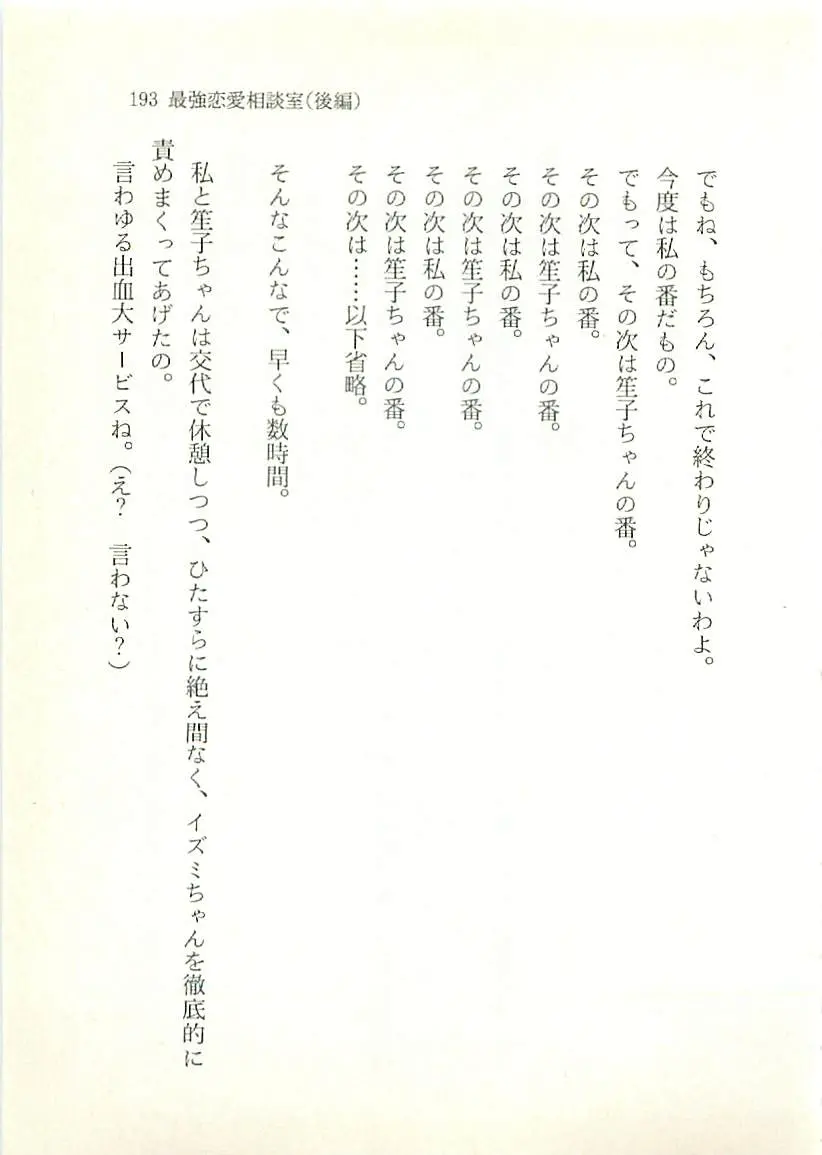 193 最強恋愛相談室(後編)
でもね、もちろん、これで終わりじゃないわよ。
今度は私の番だもの。
でもって、その次は笙子ちゃんの番。
その次は私の番。
その次は笙子ちゃんの番。
その次は私の番。
その次は笙子ちゃんの番。
その次は私の番。
その次は笙子ちゃんの番。
その次は……以下省略。
そんなこんなで、早くも数時間。
私と笙子ちゃんは交代で休憩しつつ、ひたすらに絶え間なく、イズミちゃんを徹底的に
責めまくってあげたの。
言わゆる出血大サービスね。(え?　言わない?)